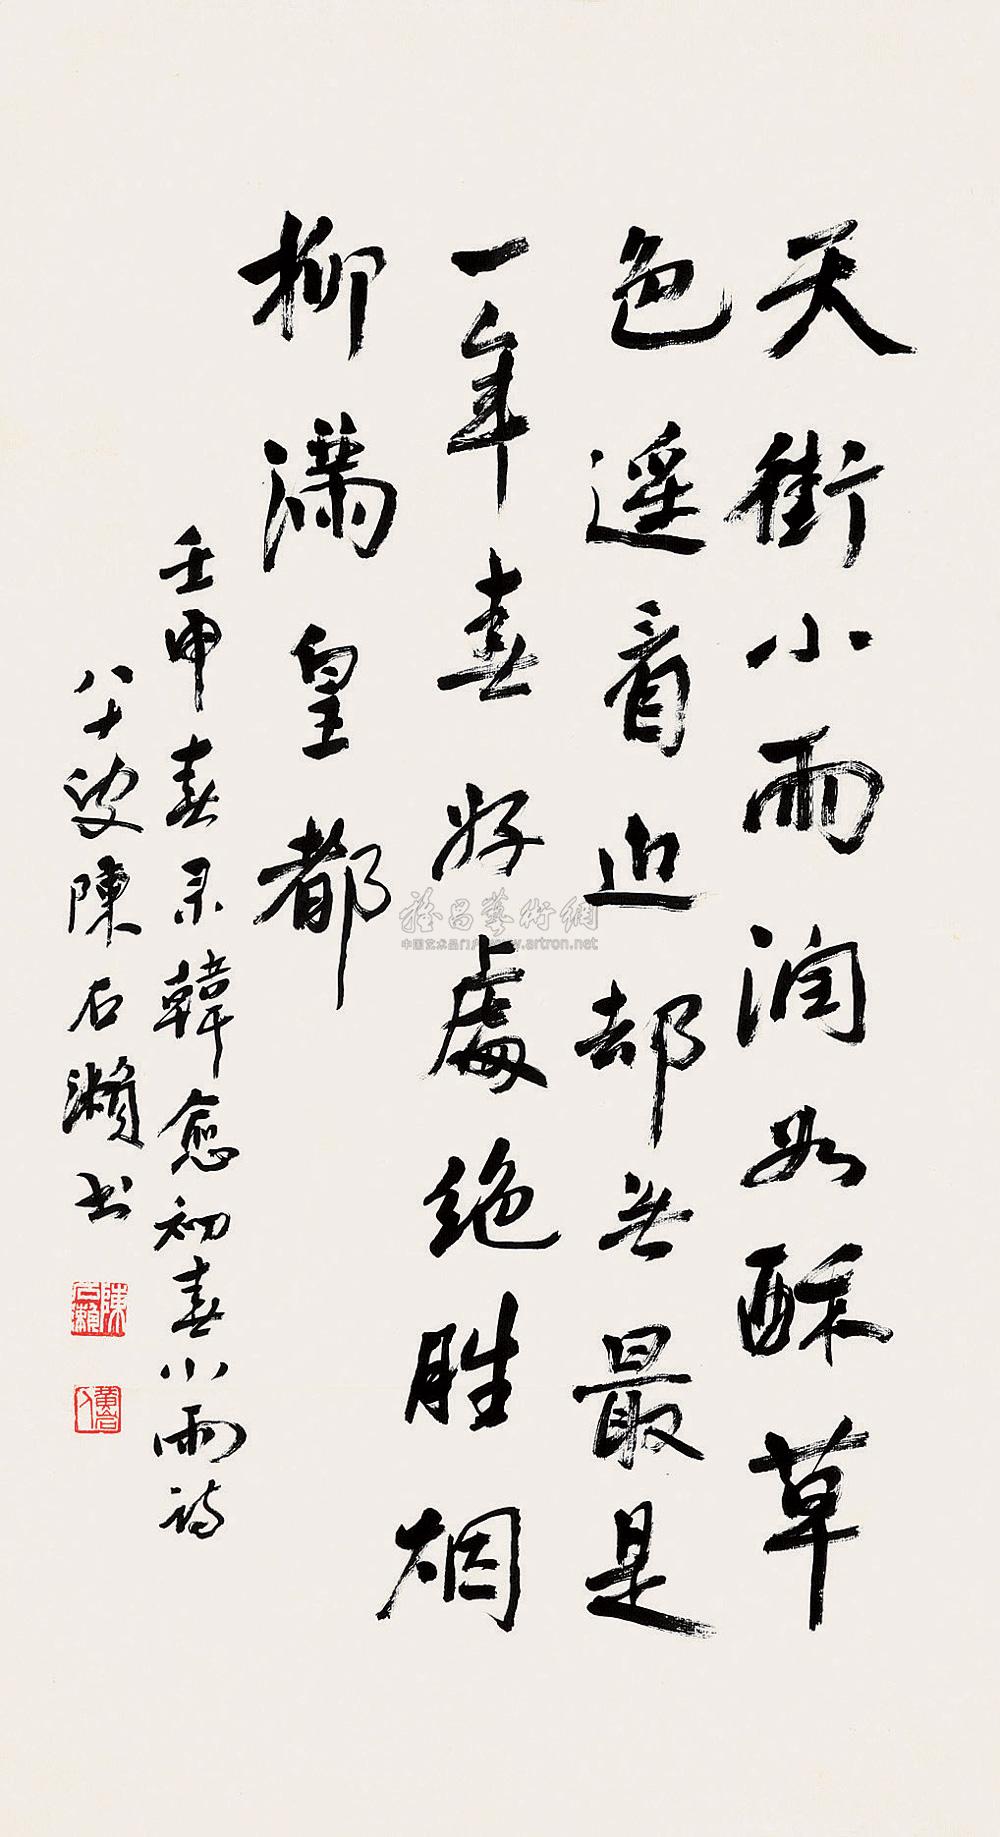 天街小雨润如酥草
色遥看近却无最是
一年春好處絕胜烟
柳满皇都
壬申春录韓愈初春小雨诗
八十叟陳石瀨书
陳石瀨
雅昌藝術網
中国艺术品门户 www.artron.net